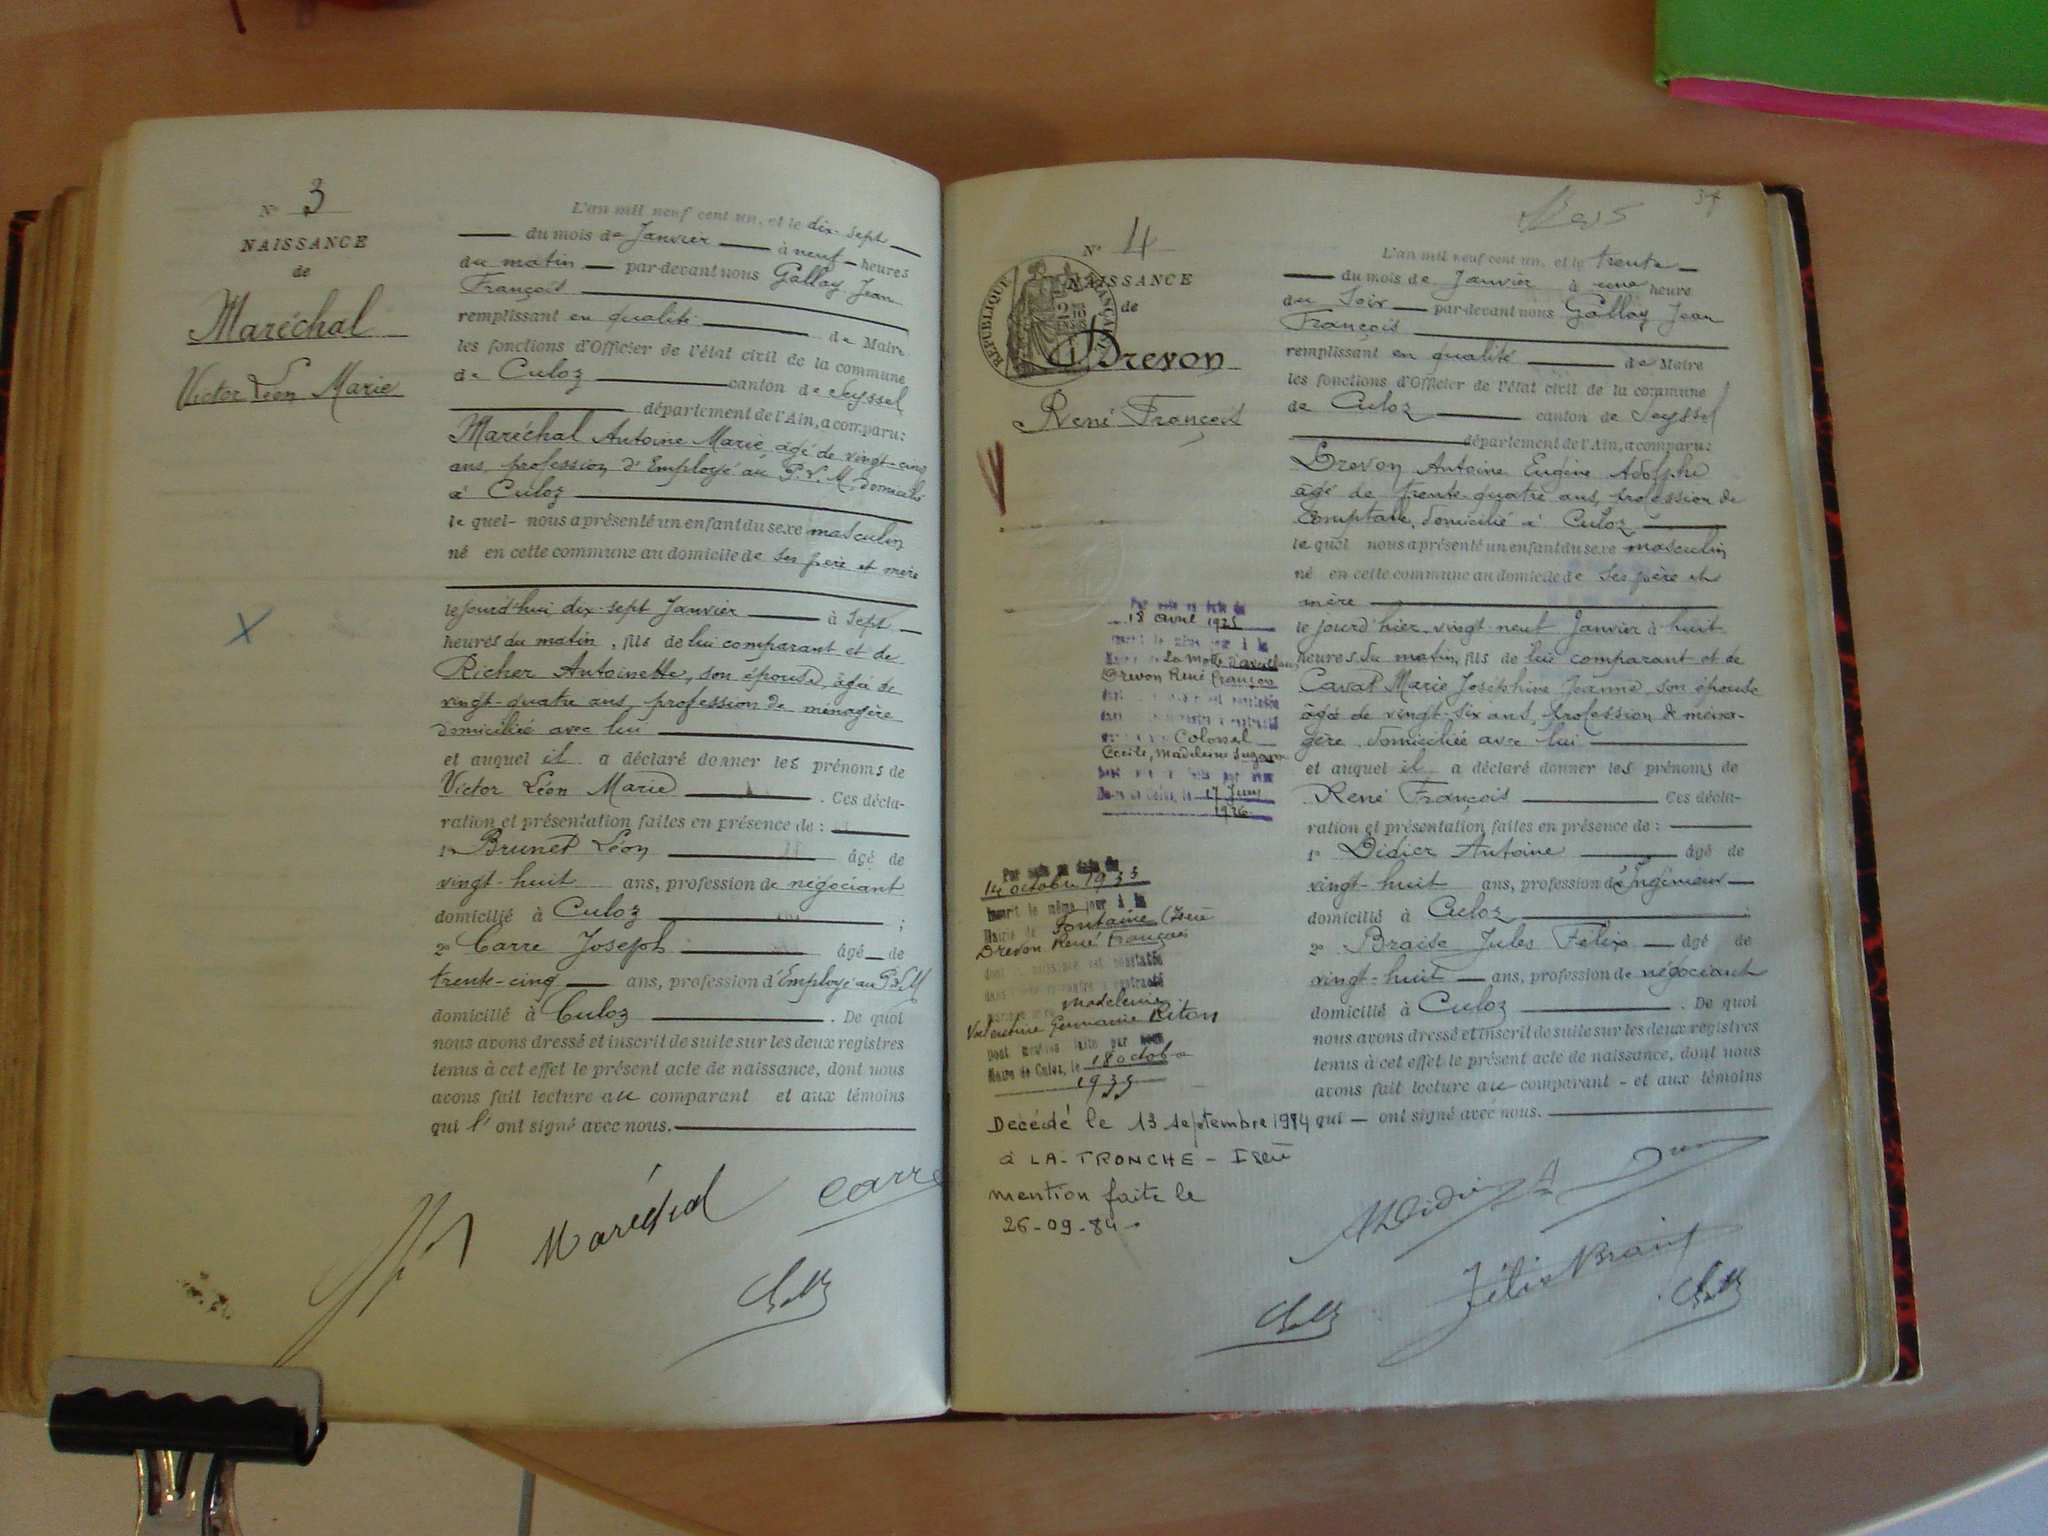 N° 3
NAISSANCE
de
Maréchal
Victor Léon Marie
L'an mil neuf cent un, et le dix-sept
du mois de Janvier à neuf heures
du matin par-devant nous Gallay Jean
François
remplissant en qualité de Maire
les fonctions d'Officier de l'état civil de la commune
de Culoz canton de Seyssel
département de l'Ain, a comparu:
Maréchal Antoine Marie, âgé de vingt-cinq
ans, profession d'Employé au P.L.M. domicilié
à Culoz
le quel nous a présenté un enfant du sexe masculin
né en cette commune au domicile de ses père et mère
le jourd'hui dix-sept Janvier à sept
heures du matin, fils de lui comparant et de
Richer Antoinette, son épouse, âgée de
vingt-quatre ans, profession de ménagère
domiciliée avec lui
et auquel il a déclaré donner les prénoms de
Victor Léon Marie. Ces décla-
ration et présentation faites en présence de:
1° Brunet Léon âgé de
vingt-huit ans, profession de négociant
domicilié à Culoz ;
2° Carre Joseph âgé de
trente-cinq ans, profession d'Employé au P.L.M
domicilié à Culoz. De quoi
nous avons dressé et inscrit de suite sur les deux registres
tenus à cet effet le présent acte de naissance, dont nous
avons fait lecture au comparant et aux témoins
qui l'ont signé avec nous.
Maréchal
Carre
37
N° 4
NAISSANCE
de
RÉPUBLIQUE FRANÇAISE
Drevon
René François
L'an mil neuf cent un, et le trente
du mois de Janvier à une heure
du soir par-devant nous Gallay Jean
François
remplissant en qualité de Maire
les fonctions d'Officier de l'état civil de la commune
de Culoz canton de Seyssel
département de l'Ain, a comparu:
Drevon Antoine Eugène Adolphe
âgé de trente-quatre ans, profession de
Comptable, domicilié à Culoz
le quel nous a présenté un enfant du sexe masculin
né en cette commune au domicile de ses père et
mère
le jourd'hier vingt-neuf Janvier à huit
heures du matin, fils de lui comparant et de
Marie Joséphine Jeanne, son épouse
âgée de vingt-six ans, profession de ména-
gère domiciliée avec lui
et auquel il a déclaré donner les prénoms de
René François Ces décla-
ration et présentation faites en présence de:
1° Didier Antoine âgé de
vingt-huit ans, profession d'Ingénieur
domicilié à Culoz ;
2° Braise Jules Félix âgé de
vingt-huit ans, profession de négociant
domicilié à Culoz. De quoi
nous avons dressé et inscrit de suite sur les deux registres
tenus à cet effet le présent acte de naissance, dont nous
avons fait lecture au comparant et aux témoins
qui ont signé avec nous.
Par acte en date du
18 avril 1925
inscrit le même jour à la
Mairie de La Motte d'aveillans
Drevon René François
Colonel
Cécile, Madeleine Suzanne
17 Juin
1926
Par acte en date du
14 octobre 1935
inscrit le même jour à la
Mairie de Fontaine (Isère
Drevon René François
dont la naissance est constatée
Madeleine
Germaine
dont mention faite par nous
Maire de Culoz, le 18 octobre
1935
Décédé le 13 septembre 1984
à LA-TRONCHE - Isère
mention faite le
26-09-84
Félix